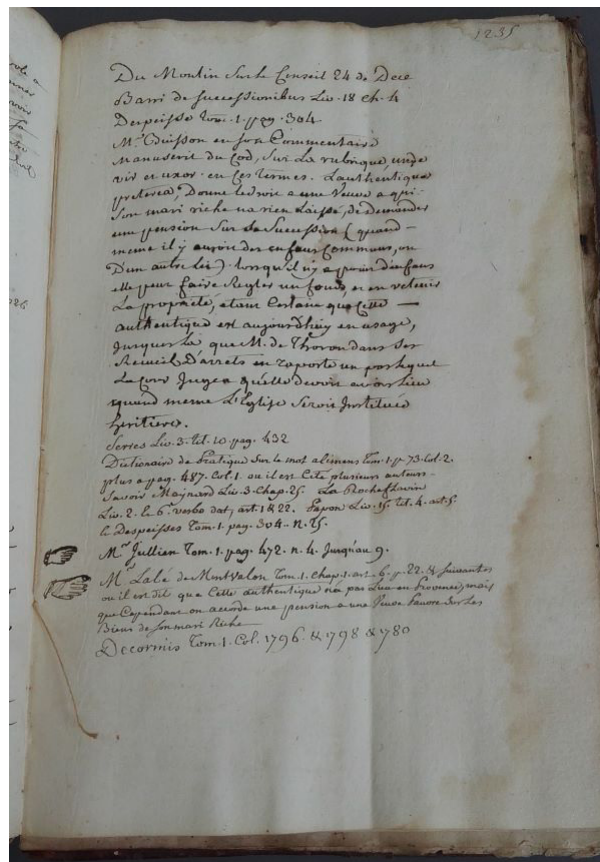 1235
Du Moulin Sur le Conseil 24 de Dece
Barri de successionibus Liv. 18 ch. 4
Despeisse tom. 1. pag. 304
Mr. Buisson en son Commentaire
Manuscrit du Cod, Sur La rubrique, unde
vir et uxor. en ces termes. Lauthentique
preterea, Donne le droit a une Veuve a qui
son mari riche na rien Laissé, de demander
une pension Sur Sa Succession (quand
meme il y auroit des enfans Communs, ou
D'un autre lit) lorsqu'il n'y a point d'enfans
elle peut faire Regler un fonds, et en retenir
La propriété, etant Certain que Cette
authentique est aujourd'huy en usage,
jusques La que M. de Thoron dans Ses
Recueil D'arrets en raporte un par lequel
La Cour Jugea qu'elle devoit avoir Lieu
quand meme L'Eglise Seroit Instituée
heritiere.
Serres Liv. 3. tit. 10. pag. 432
Dictionaire de Pratique Sur le mot alimens tom. 1. p. 73. Col. 2.
plus a pag. 487. Col. 1. ou il est Cité plusieurs auteurs.
Savoir Maynard Liv. 3. Chap. 25. La Rocheflavin
Liv. 2. le 6. verbo dot, art. 1 & 22. Papon Liv. 15. tit. 4. art. 5.
le Despeisses tom. 1. pag. 304. n. 15.
Mr. Jullien tom. 1. pag. 472. n. 4. Jusqu'au 9.
Mr. Lalé de Montvalon tom. 1. chap. 1. art. 6. p. 22. & Suivantes
ou il est dit que Cette authentique n'a pas Lieu en Provence, mais
que Cependant on accorde une pension a une Veuve Pauvre Sur Les
Biens de Son mari Riche
Decormis tom. 1. Col. 1796. & 1798 & 1780